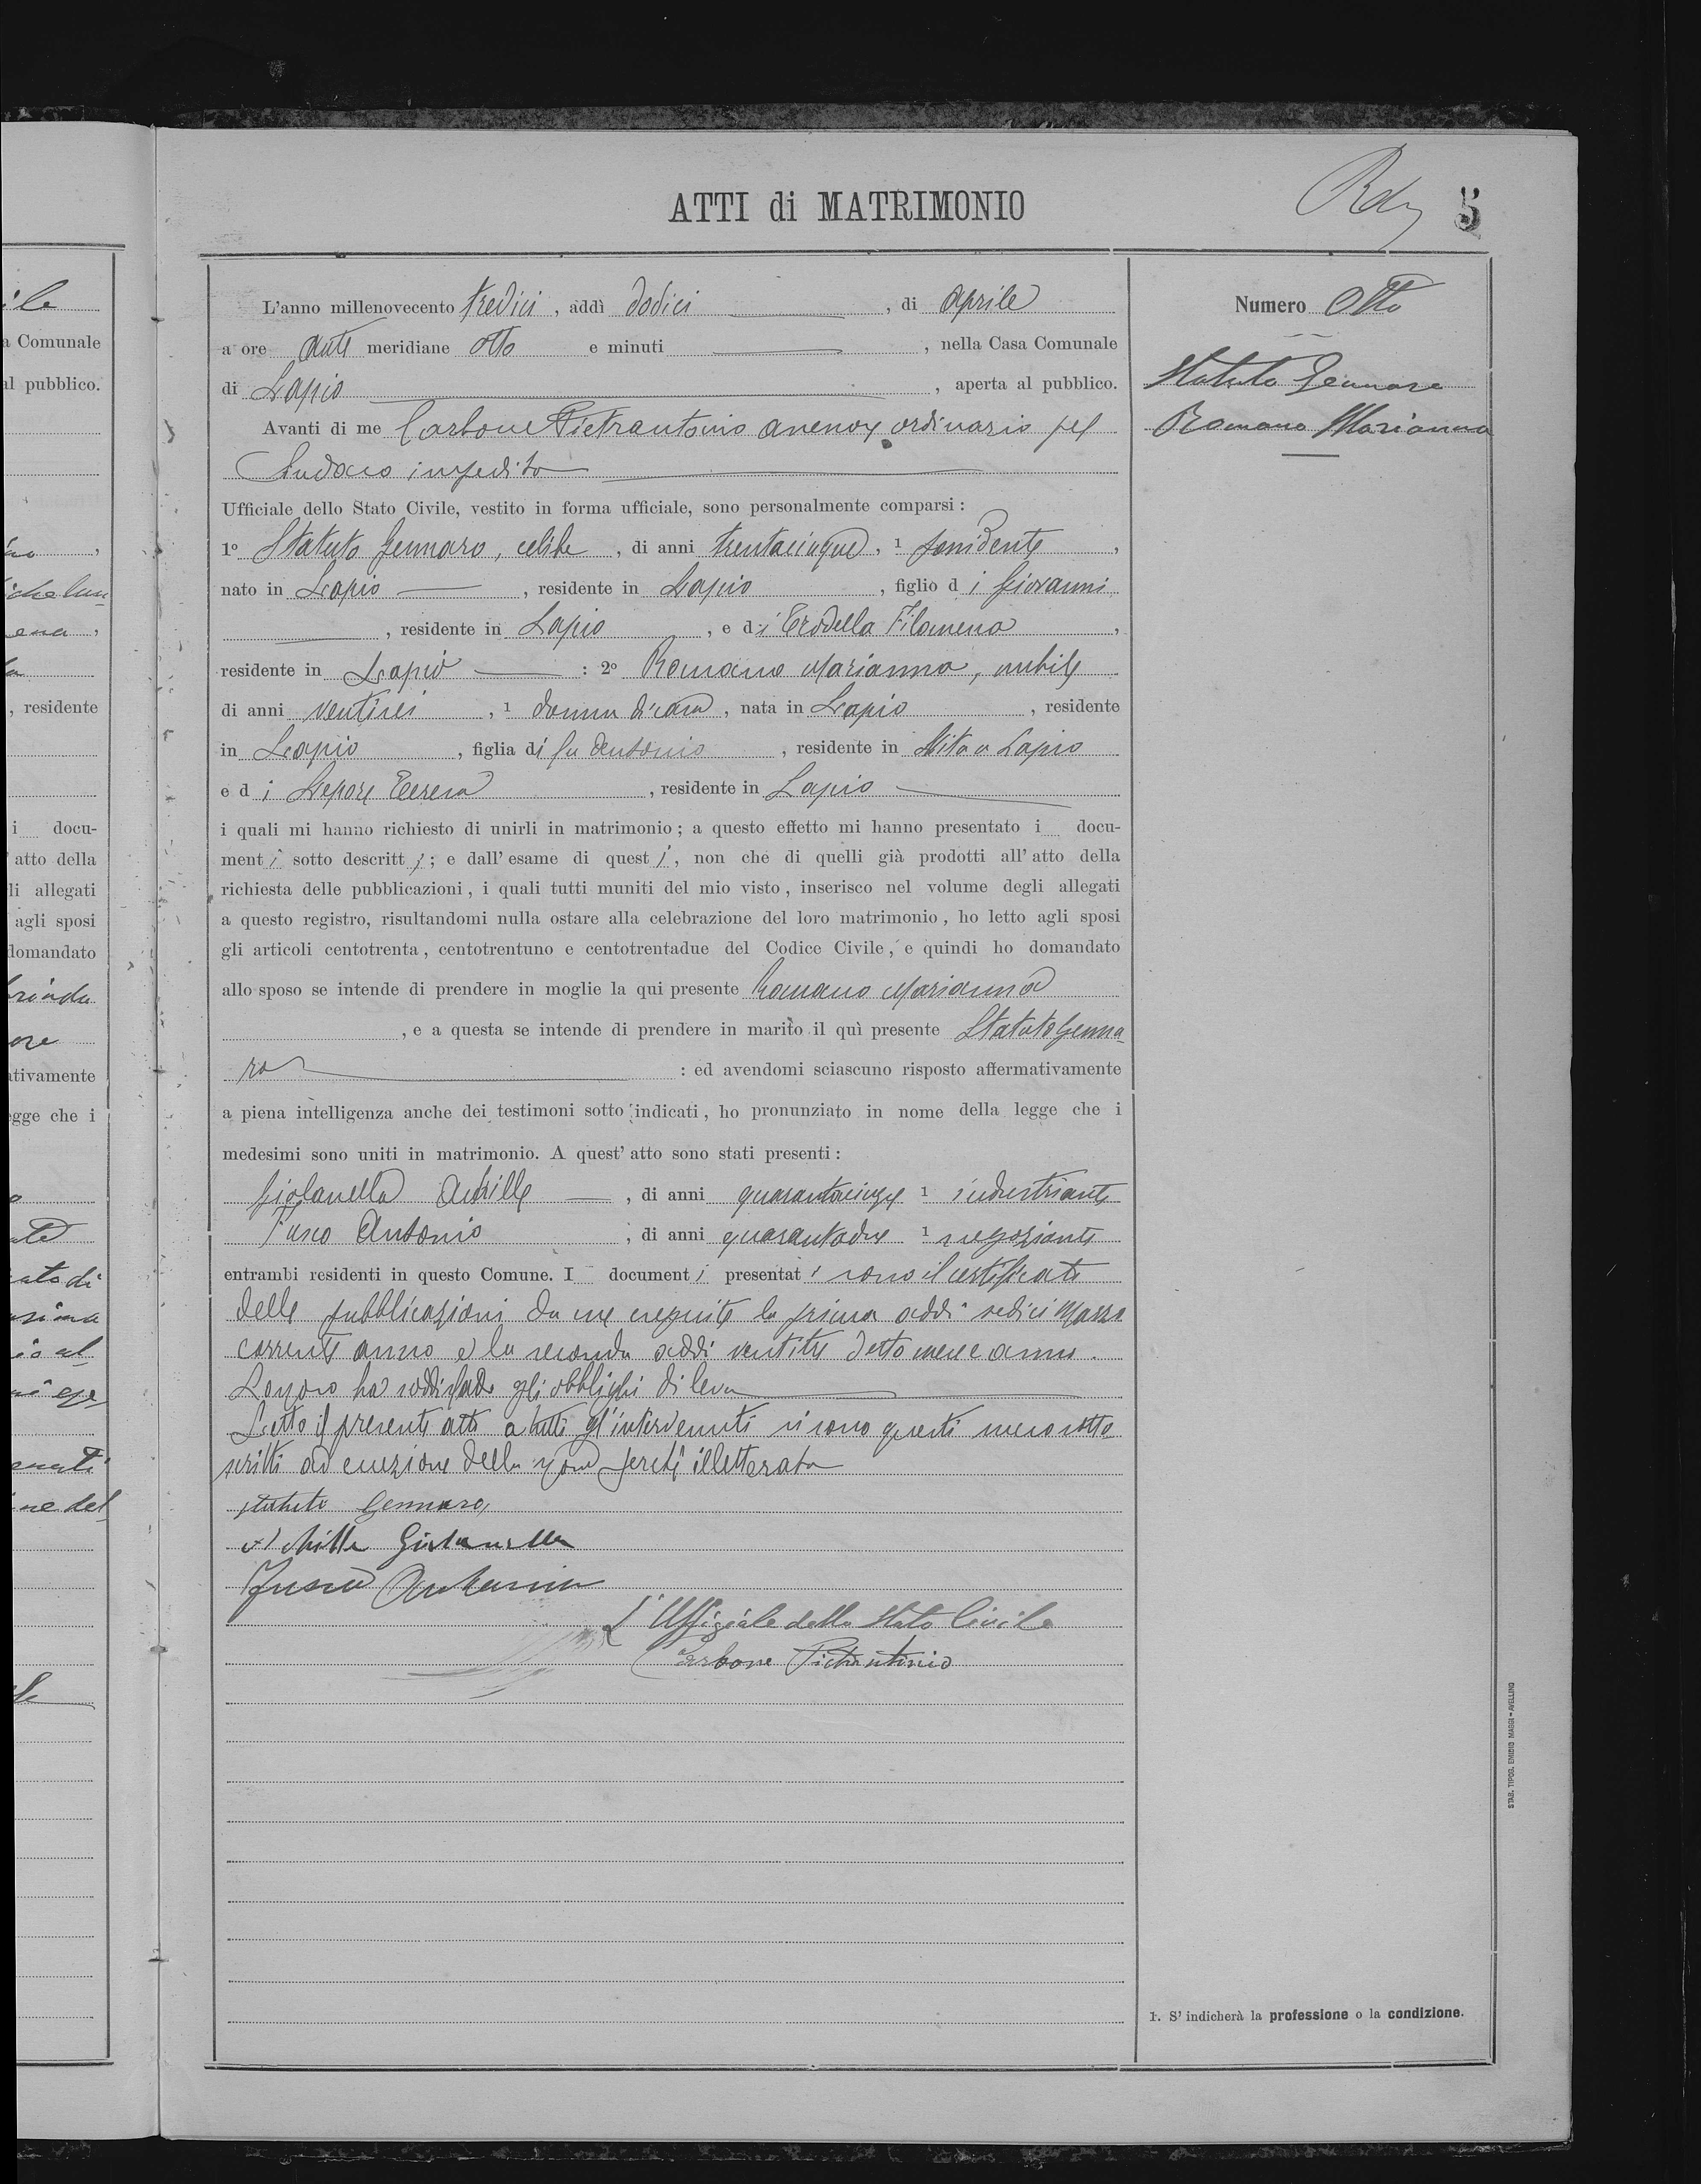 ile
a Comunale
al pubblico.
ena,
, residente
i docu-
atto della
li allegati
agli sposi
domandato
ore
ativamente
egge che i
ato di
ne del
ATTI di MATRIMONIO
5
L'anno millenovecento tredici, addì dodici, di aprile
a ore anti meridiane otto e minuti, nella Casa Comunale
di Lapio, aperta al pubblico.
Avanti di me Carbone Pietrantonio assessore ordinario pel
Sindaco impedito
Ufficiale dello Stato Civile, vestito in forma ufficiale, sono personalmente comparsi :
1º Statuto Gennaro, celibe, di anni trentacinque, 1 possidente,
nato in Lapio, residente in Lapio, figlio di Giovanni
, residente in Lapio, e di Erodella Filomena,
residente in Lapio : 2º Romano Marianna, nubile
di anni ventisei, 1 donna di casa, nata in Lapio, residente
in Lapio, figlia di fu Antonio, residente in vita a Lapio
e di Lepore Teresa, residente in Lapio
i quali mi hanno richiesto di unirli in matrimonio ; a questo effetto mi hanno presentato i docu-
menti sotto descritti ; e dall' esame di questi, non che di quelli già prodotti all' atto della
richiesta delle pubblicazioni, i quali tutti muniti del mio visto, inserisco nel volume degli allegati
a questo registro, risultandomi nulla ostare alla celebrazione del loro matrimonio, ho letto agli sposi
gli articoli centotrenta, centotrentuno e centotrentadue del Codice Civile, e quindi ho domandato
allo sposo se intende di prendere in moglie la qui presente Romano Marianna
, e a questa se intende di prendere in marito il quì presente Statuto Genna
ro : ed avendomi sciascuno risposto affermativamente
a piena intelligenza anche dei testimoni sotto indicati, ho pronunziato in nome della legge che i
medesimi sono uniti in matrimonio. A quest' atto sono stati presenti :
Giolanella Achille, di anni quarantacinque 1 industriante
Fusco Antonio, di anni quarantadue 1 negoziante
entrambi residenti in questo Comune. I documenti presentati sono il certificato
delle pubblicazioni da me eseguite la prima addì sedici Marzo
corrente anno e la seconda addì ventitre detto mese e anno.
Lo sposo ha soddisfatto gli obblighi di leva
Letto il presente atto a tutti gl'intervenuti si sono questi meco sotto
scritti ad eccezione della sposa perchè illetterata
Statuto Gennaro
Achille Giolanella
Fusco Antonio
L'Uffiziale dello Stato Civile
Carbone Pietrantonio
Numero Otto
Statuto Gennaro
Romano Marianna
1. S' indicherà la professione o la condizione.
STAB. TIPOG. EMIDIO MAGGI - AVELLINO